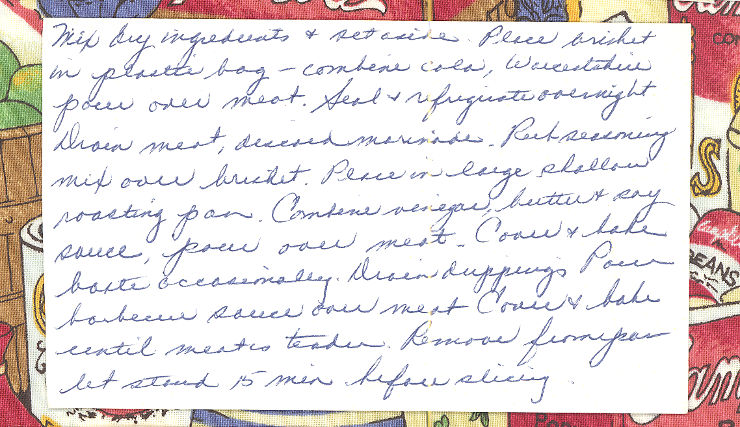 Mix dry ingredients & set aside. Place brisket
in plastic bag - combine cola, Worcestshire
pour over meat. Seal & refrigirate overnight
Drain meat, discard marinade. Rub seasoning
mix over brisket. Place in large shallow
roasting pan. Combine vinegar, butter & soy
sauce, pour over meat. Cover & bake
baste occasionally. Drain drippings Pour
barbecue sauce over meat Cover & bake
until meat is tender. Remove from pan
let stand 15 min before slicing.
CO
S
Campbell
BEANS